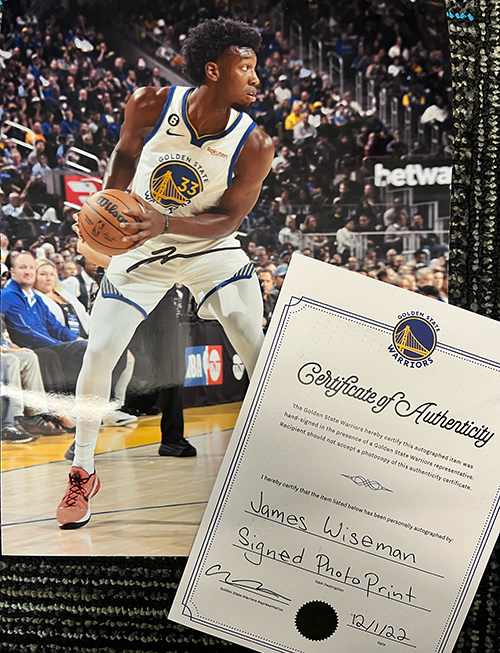 6
Rakuten
GOLDEN STATE
33
WARRIORS
Wilson
betwa
NBA
GOLDEN STATE
WARRIORS
Certificate of Authenticity
The Golden State Warriors hereby certify this autographed item was
hand-signed in the presence of a Golden State Warriors representative.
Recipient should not accept a photocopy of this authenticity certificate.
I hereby certify that the item listed below has been personally autographed by:
James Wiseman
Signed Photo Print
Item Description
Golden State Warriors Representative
12/1/22
Date